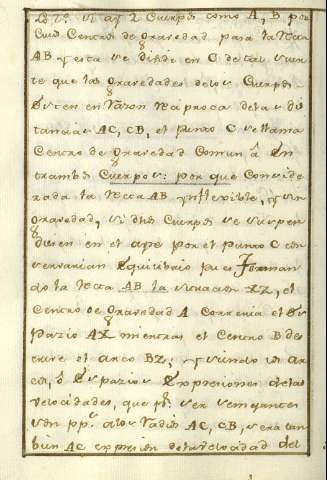 si ay 2 Cuerpos como A, B por
Cuios Centros de Gravedad passa la Recta
AB y esta se divide en C de tal suer
te que las Gravedades de los Cuerpos
esten en Razon Reciproca de las dis
tancias AC, CB, el punto C se llama
Centro de Gravedad Comun â En
trambos Cuerpos: por que Conside
rada la Recta AB ynflexible, y sin
gravedad, si dhos Cuerpos se suspen
diesen en el ayre por el punto C con
servarian Equilibrio pues Forman
do la Recta AB la situacion XZ, el
Centro de Gravedad A Correria el Es
pazio AX mientras el Centro B des
crive el arco BZ; y siendo los Ar
cos, ô Espazios Expresiones de las
velocidades, que pr. ser semejantes
son pps. a los Radios AC, CB, sera tam
bien AC expresion de la velocidad del